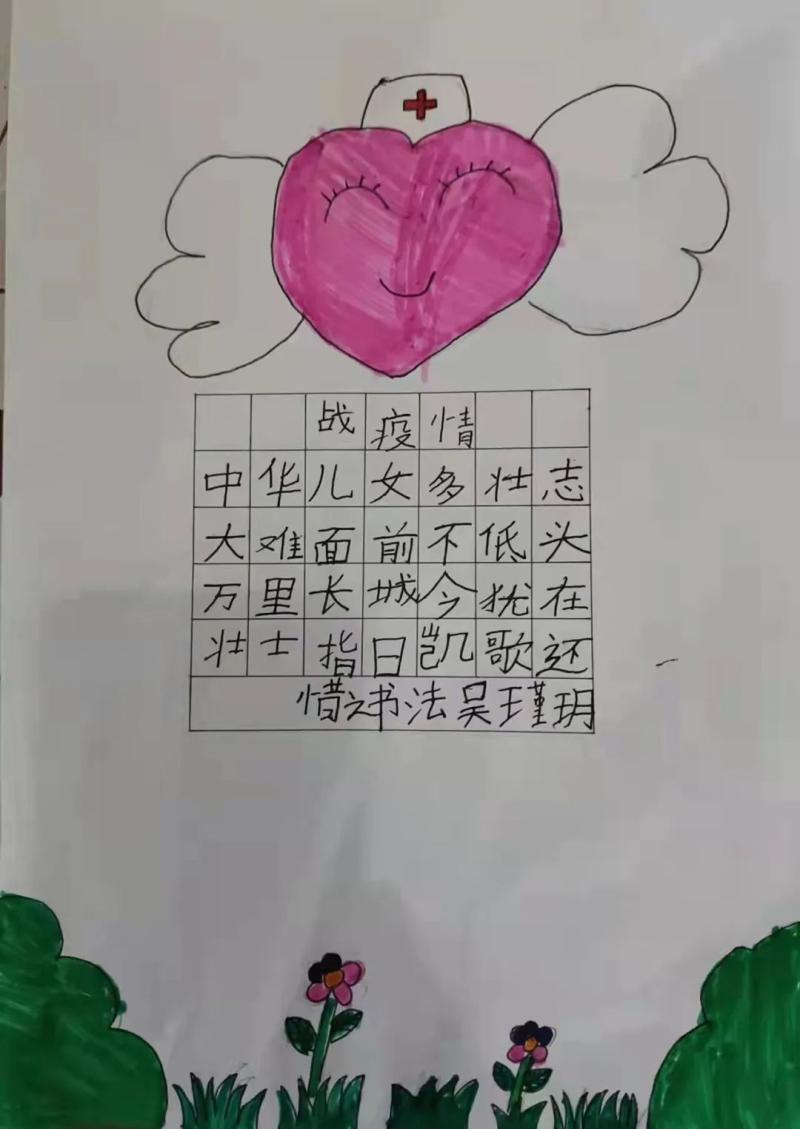 战疫情
中华儿女多壮志
大难面前不低头
万里长城今犹在
壮士指日凯歌还
惜之书法吴瑾玥